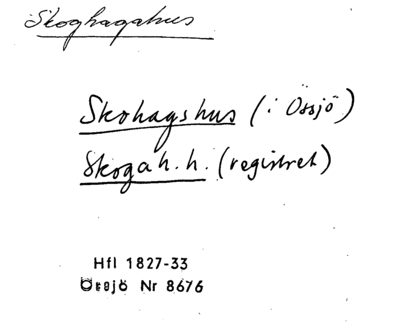 Skoghagahus
Skohagshus (i Össjö)
Skogah.h. (registret)
Hfl 1827-33
Össjö Nr 8676